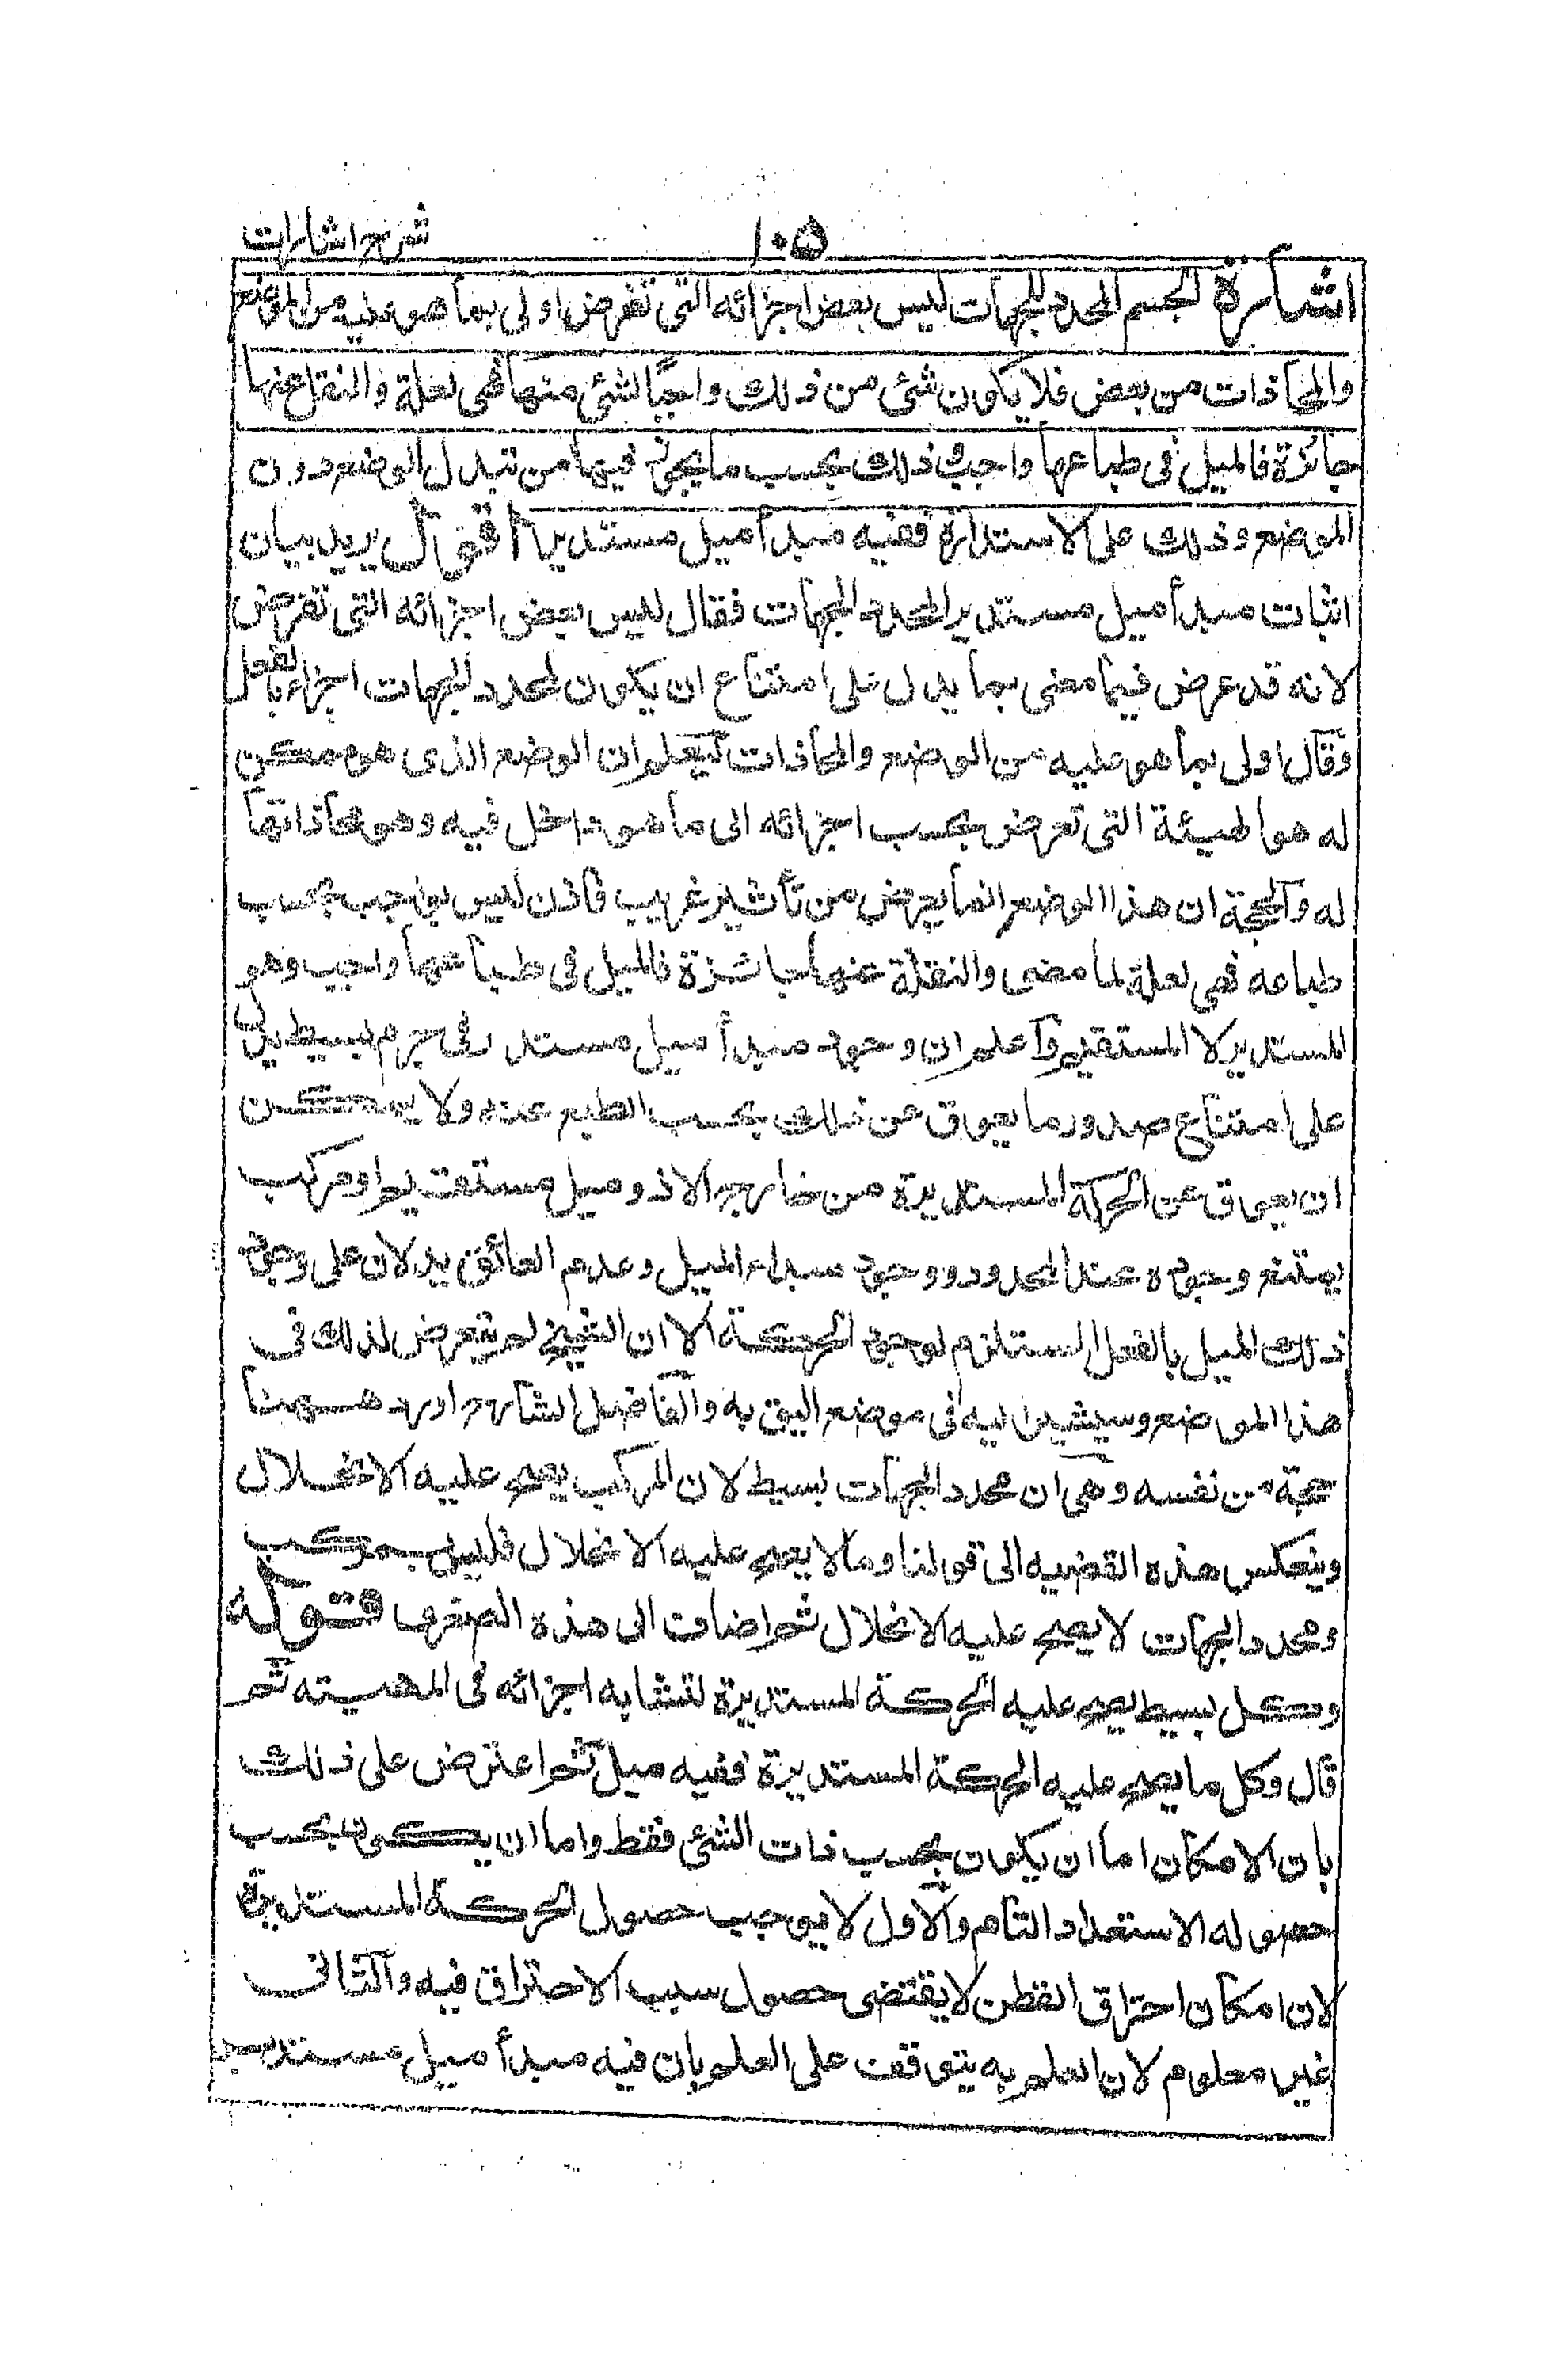 شرح اشارات
١٠٥
اشارة الجسم المحدد للجهات ليس بعض اجزائه التى تفرض اولى بما هو عليه من الوضع
والمحاذات من بعض فلا يكون شئ من ذلك واجبًا لشئ منها فهى لعلة والنقلة عنها
جائزة فالميل فى طباعها واجب وذلك بحسب ما يجوز فيها من تبدل الوضع دون
الموضع وذلك على الاستدارة ففيه مبدأ ميل مستدير اقول يريد بيان
اثبات مبدأ ميل مستدير لمحدد الجهات فقال ليس بعض اجزائه التى تفرض
لانه قد عرض فيما مضى بما يدل على امتناع ان يكون لمحدد الجهات اجزاء بالفعل
وقال اولى بما هو عليه من الوضع والمحاذات ليعلم ان الوضع الذى هو ممكن
له هو الهيئة التى تعرض بحسب اجزائه الى ما هو داخل فيه وهو محاذاتها
له والحجة ان هذا الوضع انما يعرض من تأثير غريب فاذن ليس بواجب بحسب
طباعه فهى لعلة لما مضى والنقلة عنها جائزة فالميل فى طباعها واجب وهو
المستدير لا المستقيم واعلم ان وجود مبدأ ميل مستدير فى جرم بسيط يدل
على امتناع صدور ما يعوق عن ذلك بحسب الطبع عنه ولا يمكن
ان يعوق عن الحركة المستديرة من خارج الا ذو ميل مستقيم او مركب
يمتنع وجوده عند المحدد ووجود مبداء الميل وعدم العائق يدلان على وجود
ذلك الميل بالفعل المستلزم لوجود الحركة الا ان الشيخ لم يتعرض لذلك فى
هذا الموضع وسيشير اليه فى موضع اليق به والفاضل الشارح اورد ههنا
حجة من نفسه وهى ان محدد الجهات بسيط لان المركب يصح عليه الانحلال
وينعكس هذه القضيه الى قولنا وما لا يصح عليه الانحلال فليس بمركب
ومحدد الجهات لا يصح عليه الانحلال ثم اضاف الى هذه الصغرى قوله
وكل بسيط يصح عليه الحركة المستديرة لتشابه اجزائه فى المهية ثم
قال وكل ما يصح عليه الحركة المستديرة ففيه ميل ثم اعترض على ذلك
بان الامكان اما ان يكون بحسب ذات الشئ فقط واما ان يكون بحسب
حصوله الاستعداد التام والاول لا يوجب حصول الحركة المستديرة
لان امكان احتراق القطن لا يقتضى حصول سبب الاحتراق فيه والثانى
غير معلوم لان العلم به يتوقف على العلم بان فيه مبدأ ميل مستدير